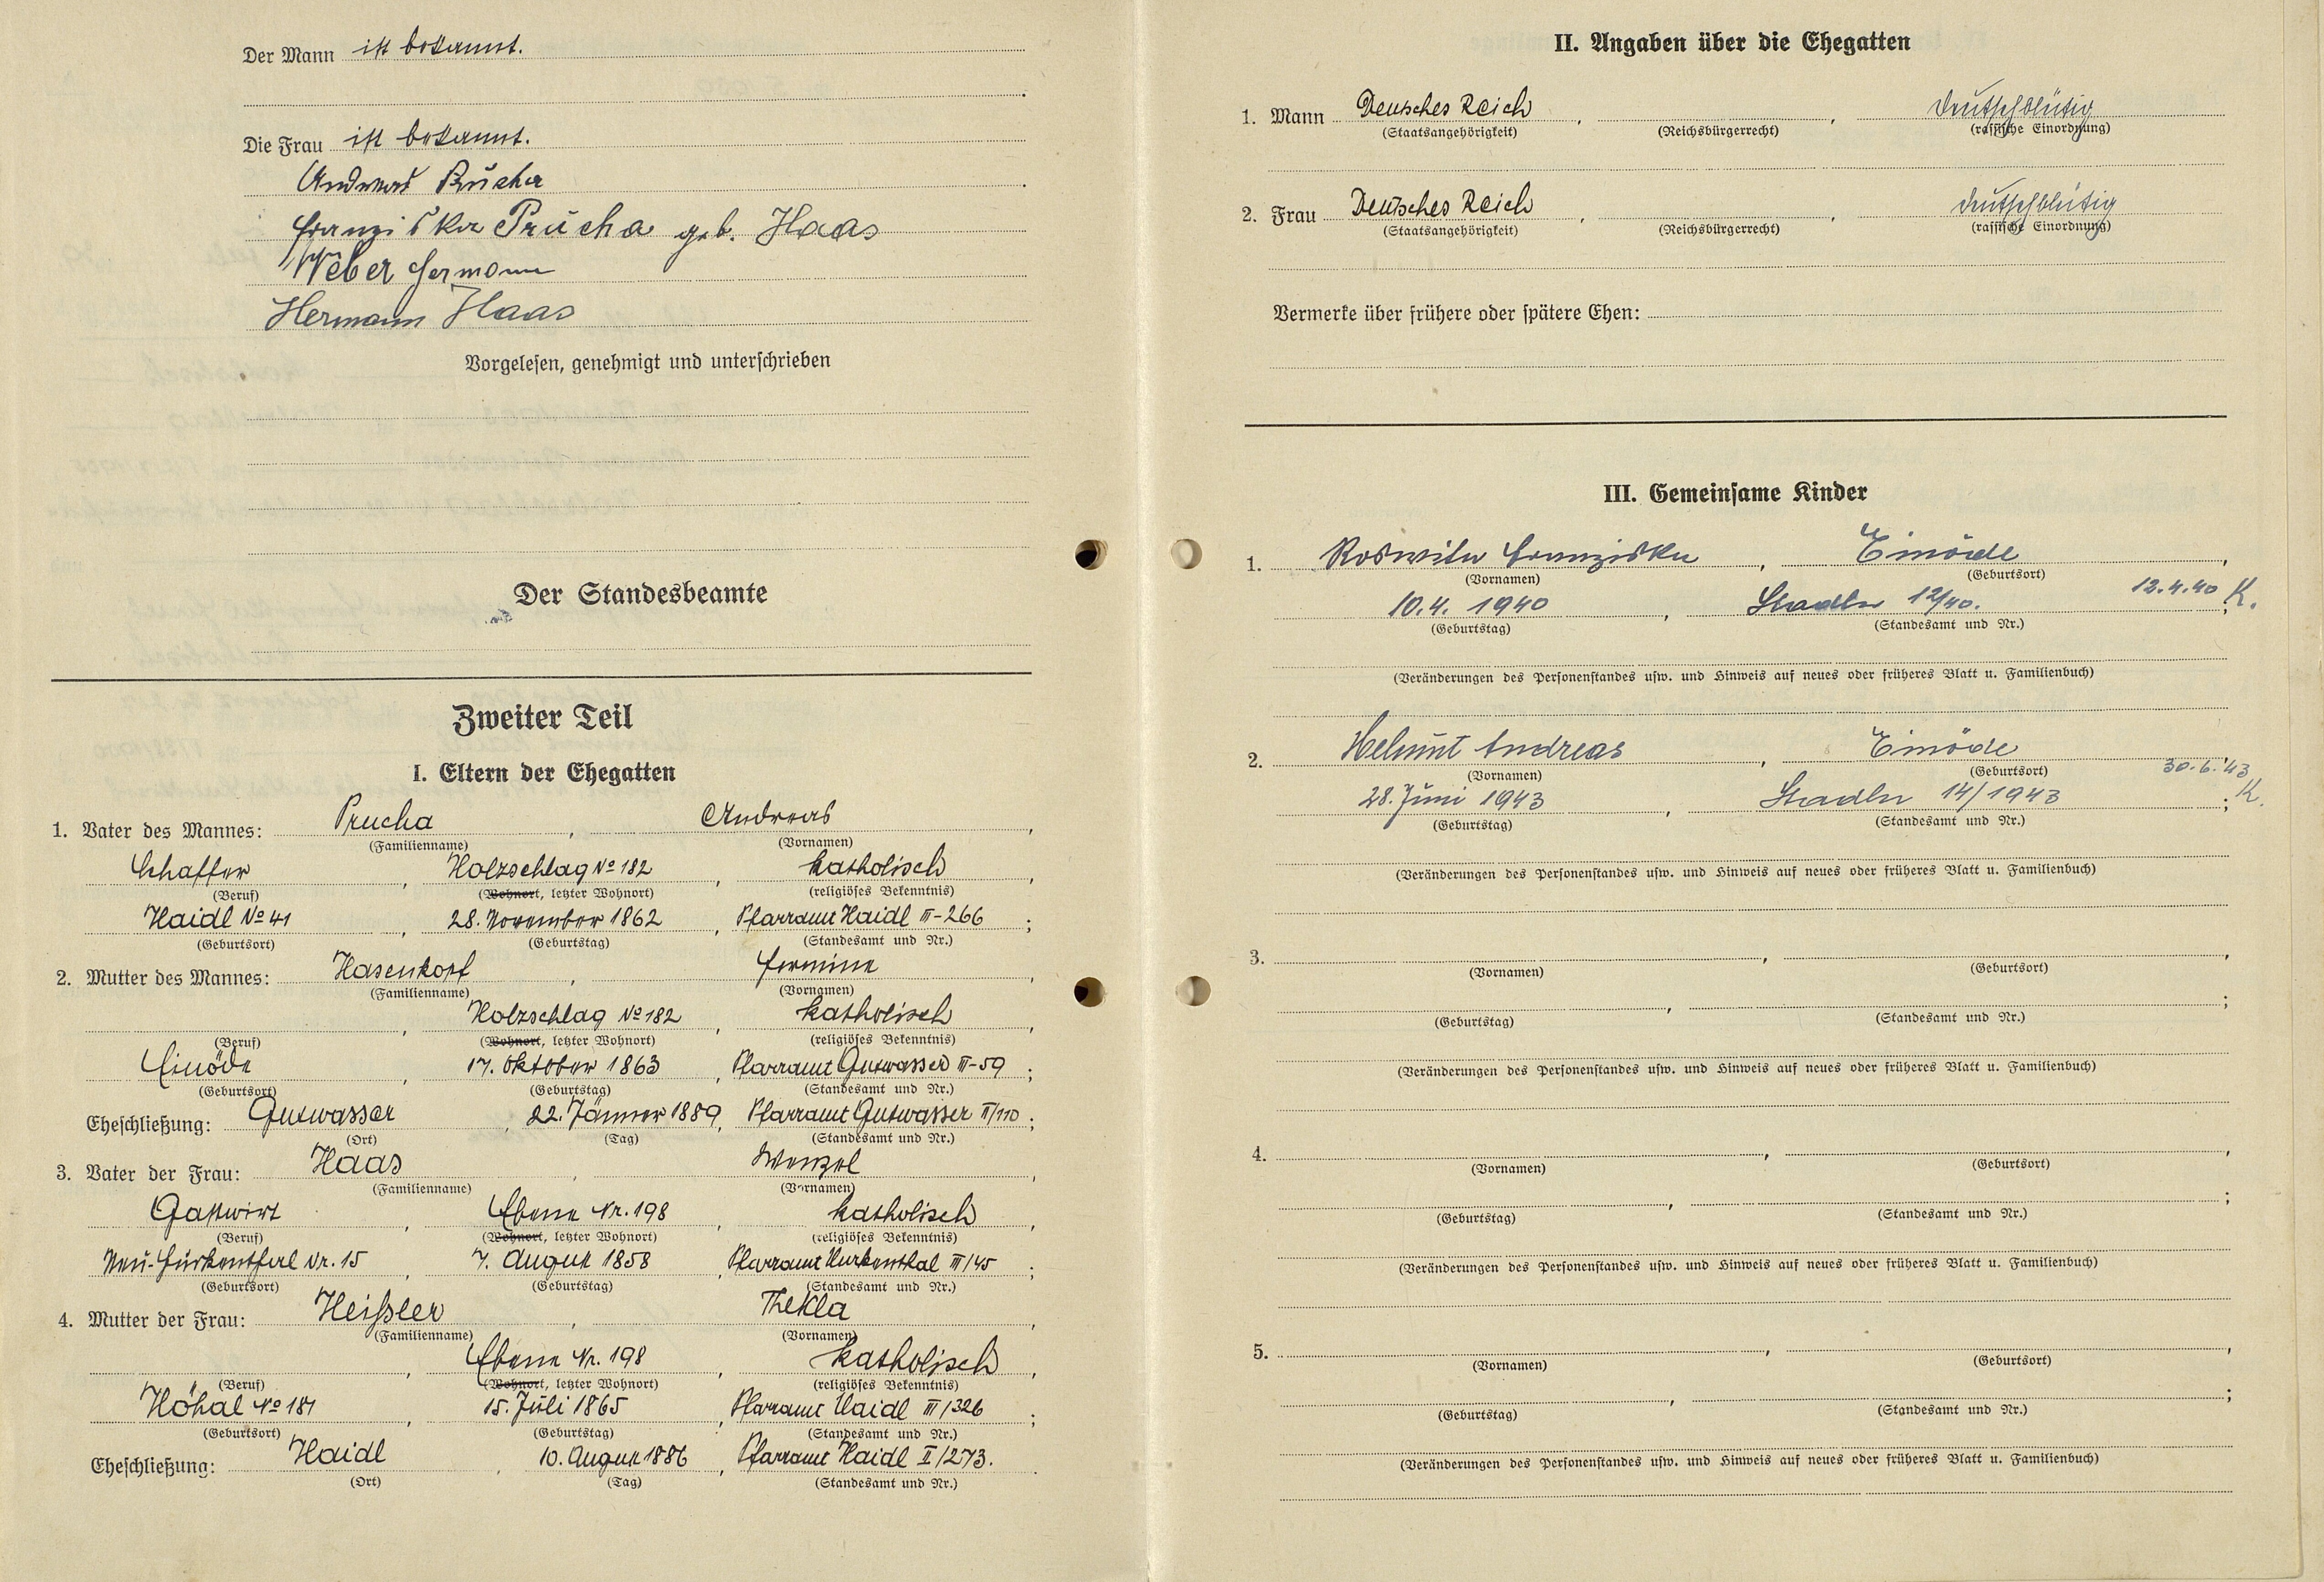 Der Mann ist bekannt.
Die Frau ist bekannt.
Andreas Prucha
Franziska Prucha geb. Haas
Weber Hermann
Hermann Haas
Vorgelesen, genehmigt und unterschrieben
Der Standesbeamte
Zweiter Teil
I. Eltern der Ehegatten
1. Vater des Mannes: Prucha, Andreas,
(Familienname) (Vornamen)
Schaffer, Holzschlag No 182, katholisch,
(Beruf) (Wohnort, letzter Wohnort) (religiöses Bekenntnis)
Haidl No 41, 28. November 1862, Pfarramt Haidl III-266;
(Geburtsort) (Geburtstag) (Standesamt und Nr.)
2. Mutter des Mannes: Hasenkopf, Hermine,
(Familienname) (Vornamen)
, Holzschlag No 182, katholisch,
(Beruf) (Wohnort, letzter Wohnort) (religiöses Bekenntnis)
Einöde, 17. Oktober 1863, Pfarramt Gutwasser III-59;
(Geburtsort) (Geburtstag) (Standesamt und Nr.)
Eheschließung: Gutwasser, 22. Jänner 1889, Pfarramt Gutwasser II/110;
(Ort) (Tag) (Standesamt und Nr.)
3. Vater der Frau: Haas, Wenzel,
(Familienname) (Vornamen)
Gastwirt, Ebene Nr. 198, katholisch,
(Beruf) (Wohnort, letzter Wohnort) (religiöses Bekenntnis)
Neu-Hurkenthal Nr. 15, 7. August 1858, Pfarramt Hurkenthal III/45;
(Geburtsort) (Geburtstag) (Standesamt und Nr.)
4. Mutter der Frau: Heißler, Thekla,
(Familienname) (Vornamen)
, Ebene Nr. 198, katholisch,
(Beruf) (Wohnort, letzter Wohnort) (religiöses Bekenntnis)
Höhal No 181, 15. Juli 1865, Pfarramt Haidl III/326;
(Geburtsort) (Geburtstag) (Standesamt und Nr.)
Eheschließung: Haidl, 10. August 1886, Pfarramt Haidl II/273.
(Ort) (Tag) (Standesamt und Nr.)
II. Angaben über die Ehegatten
1. Mann Deutsches Reich, , deutschblütig
(Staatsangehörigkeit) (Reichsbürgerrecht) (rassische Einordnung)
2. Frau Deutsches Reich, , deutschblütig
(Staatsangehörigkeit) (Reichsbürgerrecht) (rassische Einordnung)
Vermerke über frühere oder spätere Ehen:
III. Gemeinsame Kinder
1. Roswita Franziska, Einöde,
(Vornamen) (Geburtsort)
10.4. 1940, Stadln 12/40. 12.4.40 K.;
(Geburtstag) (Standesamt und Nr.)
(Veränderungen des Personenstandes usw. und Hinweis auf neues oder früheres Blatt u. Familienbuch)
2. Helmut Andreas, Einöde,
(Vornamen) (Geburtsort) 30.6.43
28. Juni 1943, Stadln 14/1943; K.
(Geburtstag) (Standesamt und Nr.)
(Veränderungen des Personenstandes usw. und Hinweis auf neues oder früheres Blatt u. Familienbuch)
3. , ,
(Vornamen) (Geburtsort)
, ;
(Geburtstag) (Standesamt und Nr.)
(Veränderungen des Personenstandes usw. und Hinweis auf neues oder früheres Blatt u. Familienbuch)
4. , ,
(Vornamen) (Geburtsort)
, ;
(Geburtstag) (Standesamt und Nr.)
(Veränderungen des Personenstandes usw. und Hinweis auf neues oder früheres Blatt u. Familienbuch)
5. , ,
(Vornamen) (Geburtsort)
, ;
(Geburtstag) (Standesamt und Nr.)
(Veränderungen des Personenstandes usw. und Hinweis auf neues oder früheres Blatt u. Familienbuch)